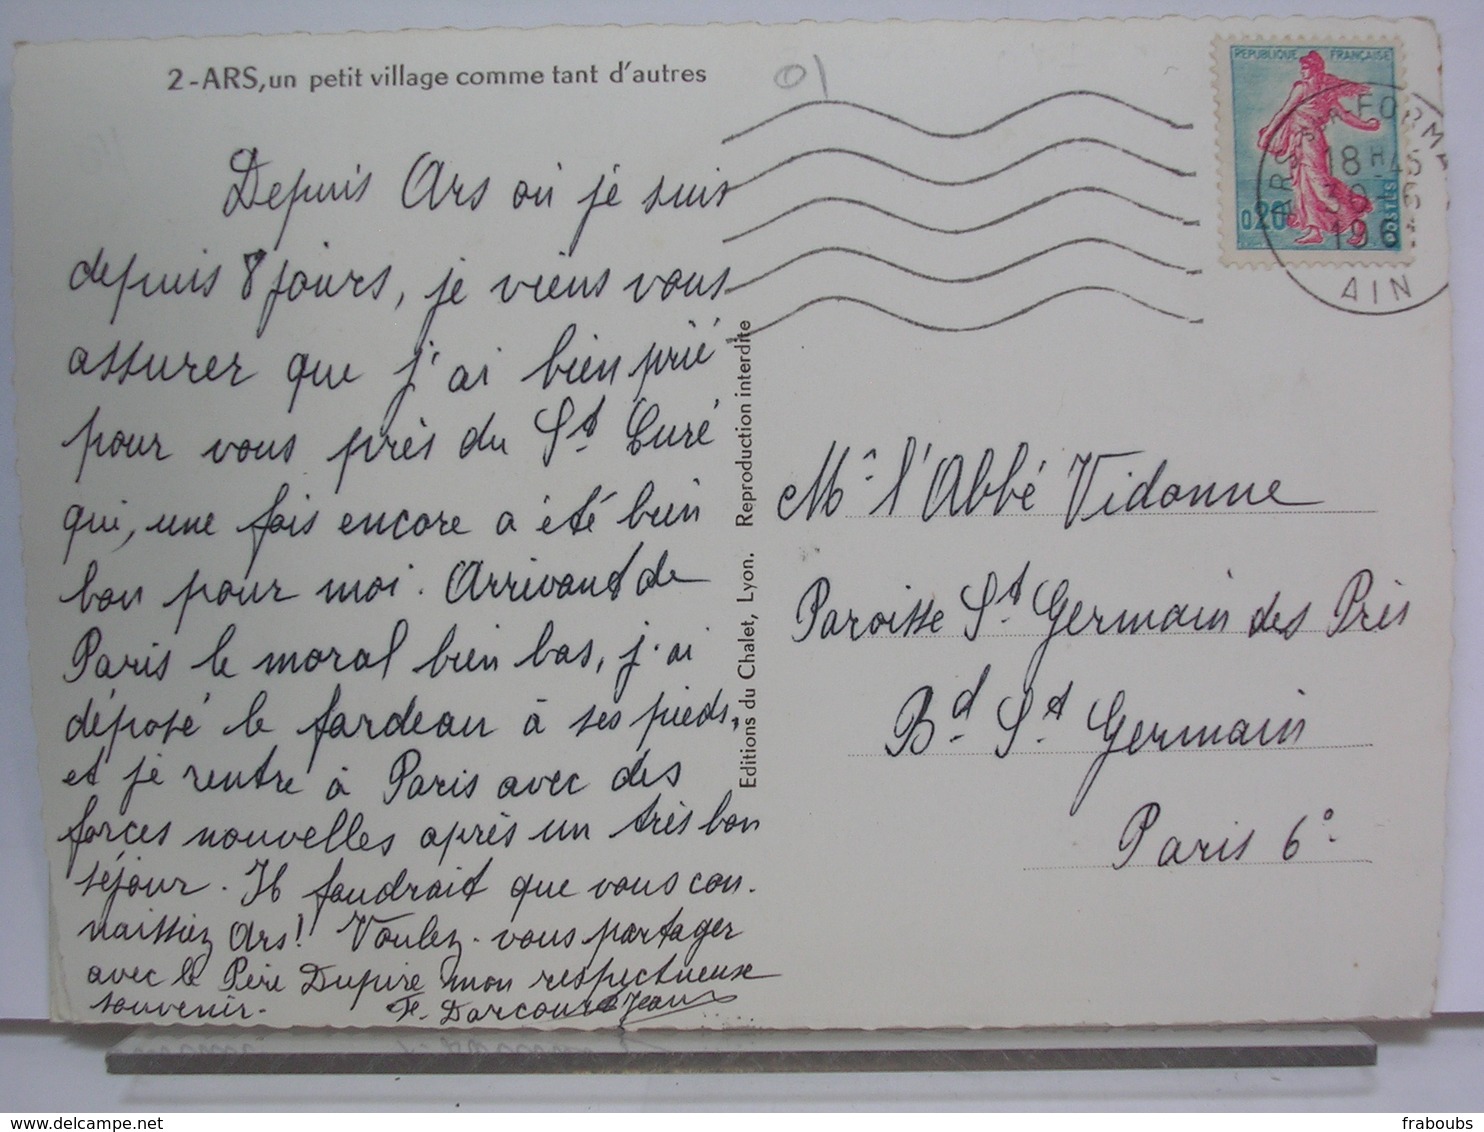 2-ARS, un petit village comme tant d'autres
Depuis Ars où je suis
depuis 8 jours, je viens vous
assurer que j'ai bien prié
pour vous près du St. Curé
qui, une fois encore a été bien
bon pour moi. Arrivant de
Paris le moral bien bas, j'ai
déposé le fardeau à ses pieds,
et je rentre à Paris avec des
forces nouvelles après un très bon
séjour. Il faudrait que vous con-
naissiez Ars! Voulez-vous partager
avec le Père Dupire mon respectueux
souvenir.
Editions du Chalet, Lyon. Reproduction interdite
REPUBLIQUE FRANÇAISE
0,20
POSTES
18 H 45
AIN
Mr l'Abbé Vidonne
Paroisse St. Germain des Près
Bd. St. Germain
Paris 6°
fraboubs